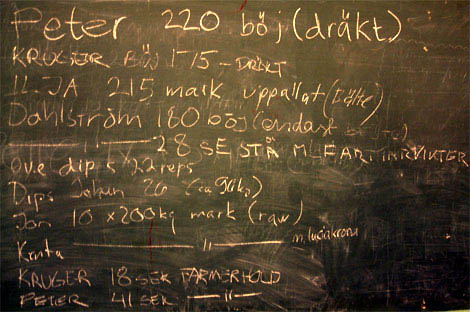 Peter 220 böj (dräkt)
KRUGER BÖJ 175 - DRÄKT
215 mark uppallat (Bälte)
Dahlström 180 böj (endast bälte)
—— 11 —— 28 SE STÅ M
Ove dips 22 reps
Dips Johan 26 (ca 90kg)
Jon 10 x 200kg mark (raw)
Kenta —— 11 —— m. luciakrona
KRUGER 18 SEK FARMERHOLD
PETER 41 SEK —— 11 ——